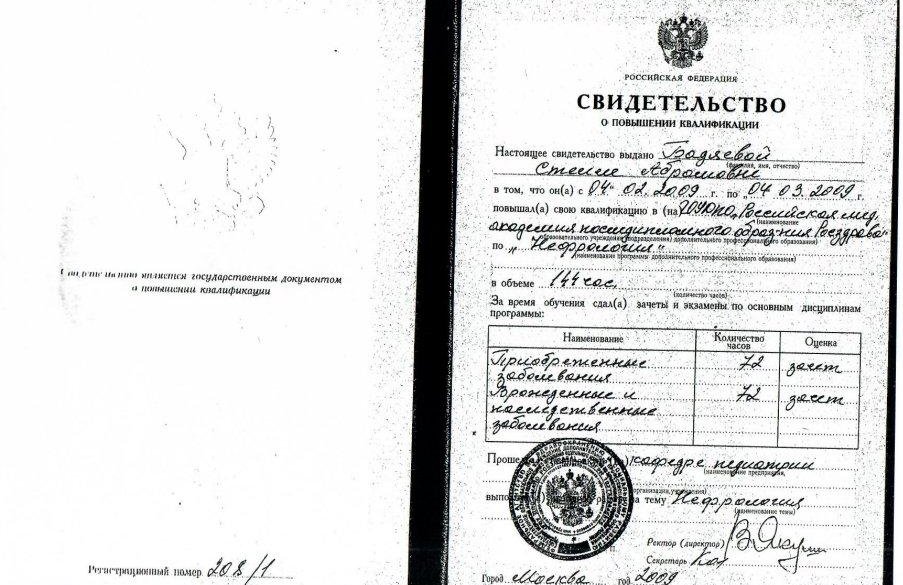 Свидетельство является государственным документом
о повышении квалификации
Регистрационный номер 208/1
РОССИЙСКАЯ ФЕДЕРАЦИЯ
СВИДЕТЕЛЬСТВО
О ПОВЫШЕНИИ КВАЛИФИКАЦИИ
Настоящее свидетельство выдано Бадяевой
(фамилия, имя, отчество)
Стелле Абрамовне
в том, что он(а) с "04" 02. 2009 г. по "04" 03. 2009 г.
повышал(а) свою квалификацию в (на) ГОУ ДПО „Российская мед.
(наименование
академия последипломного образ-ния Росздрава"
образовательного учреждения (подразделения) дополнительного профессионального образования)
по „Нефрология"
(наименование программы дополнительного профессионального образования)
в объеме 144 час.
(количество часов)
За время обучения сдал(а) зачеты и экзамены по основным дисциплинам
программы:
Наименование Количество часов Оценка
Приобретенные 72 зачет
заболевания
Врожденные и 72 зачет
наследственные
заболевания
Прошел(а) кафедре педиатрии
(наименование предприятия,
организации, учреждения)
выполнил(а) на тему Нефрология
(наименование темы)
Ректор (директор)
Секретарь
Город Москва год 2009